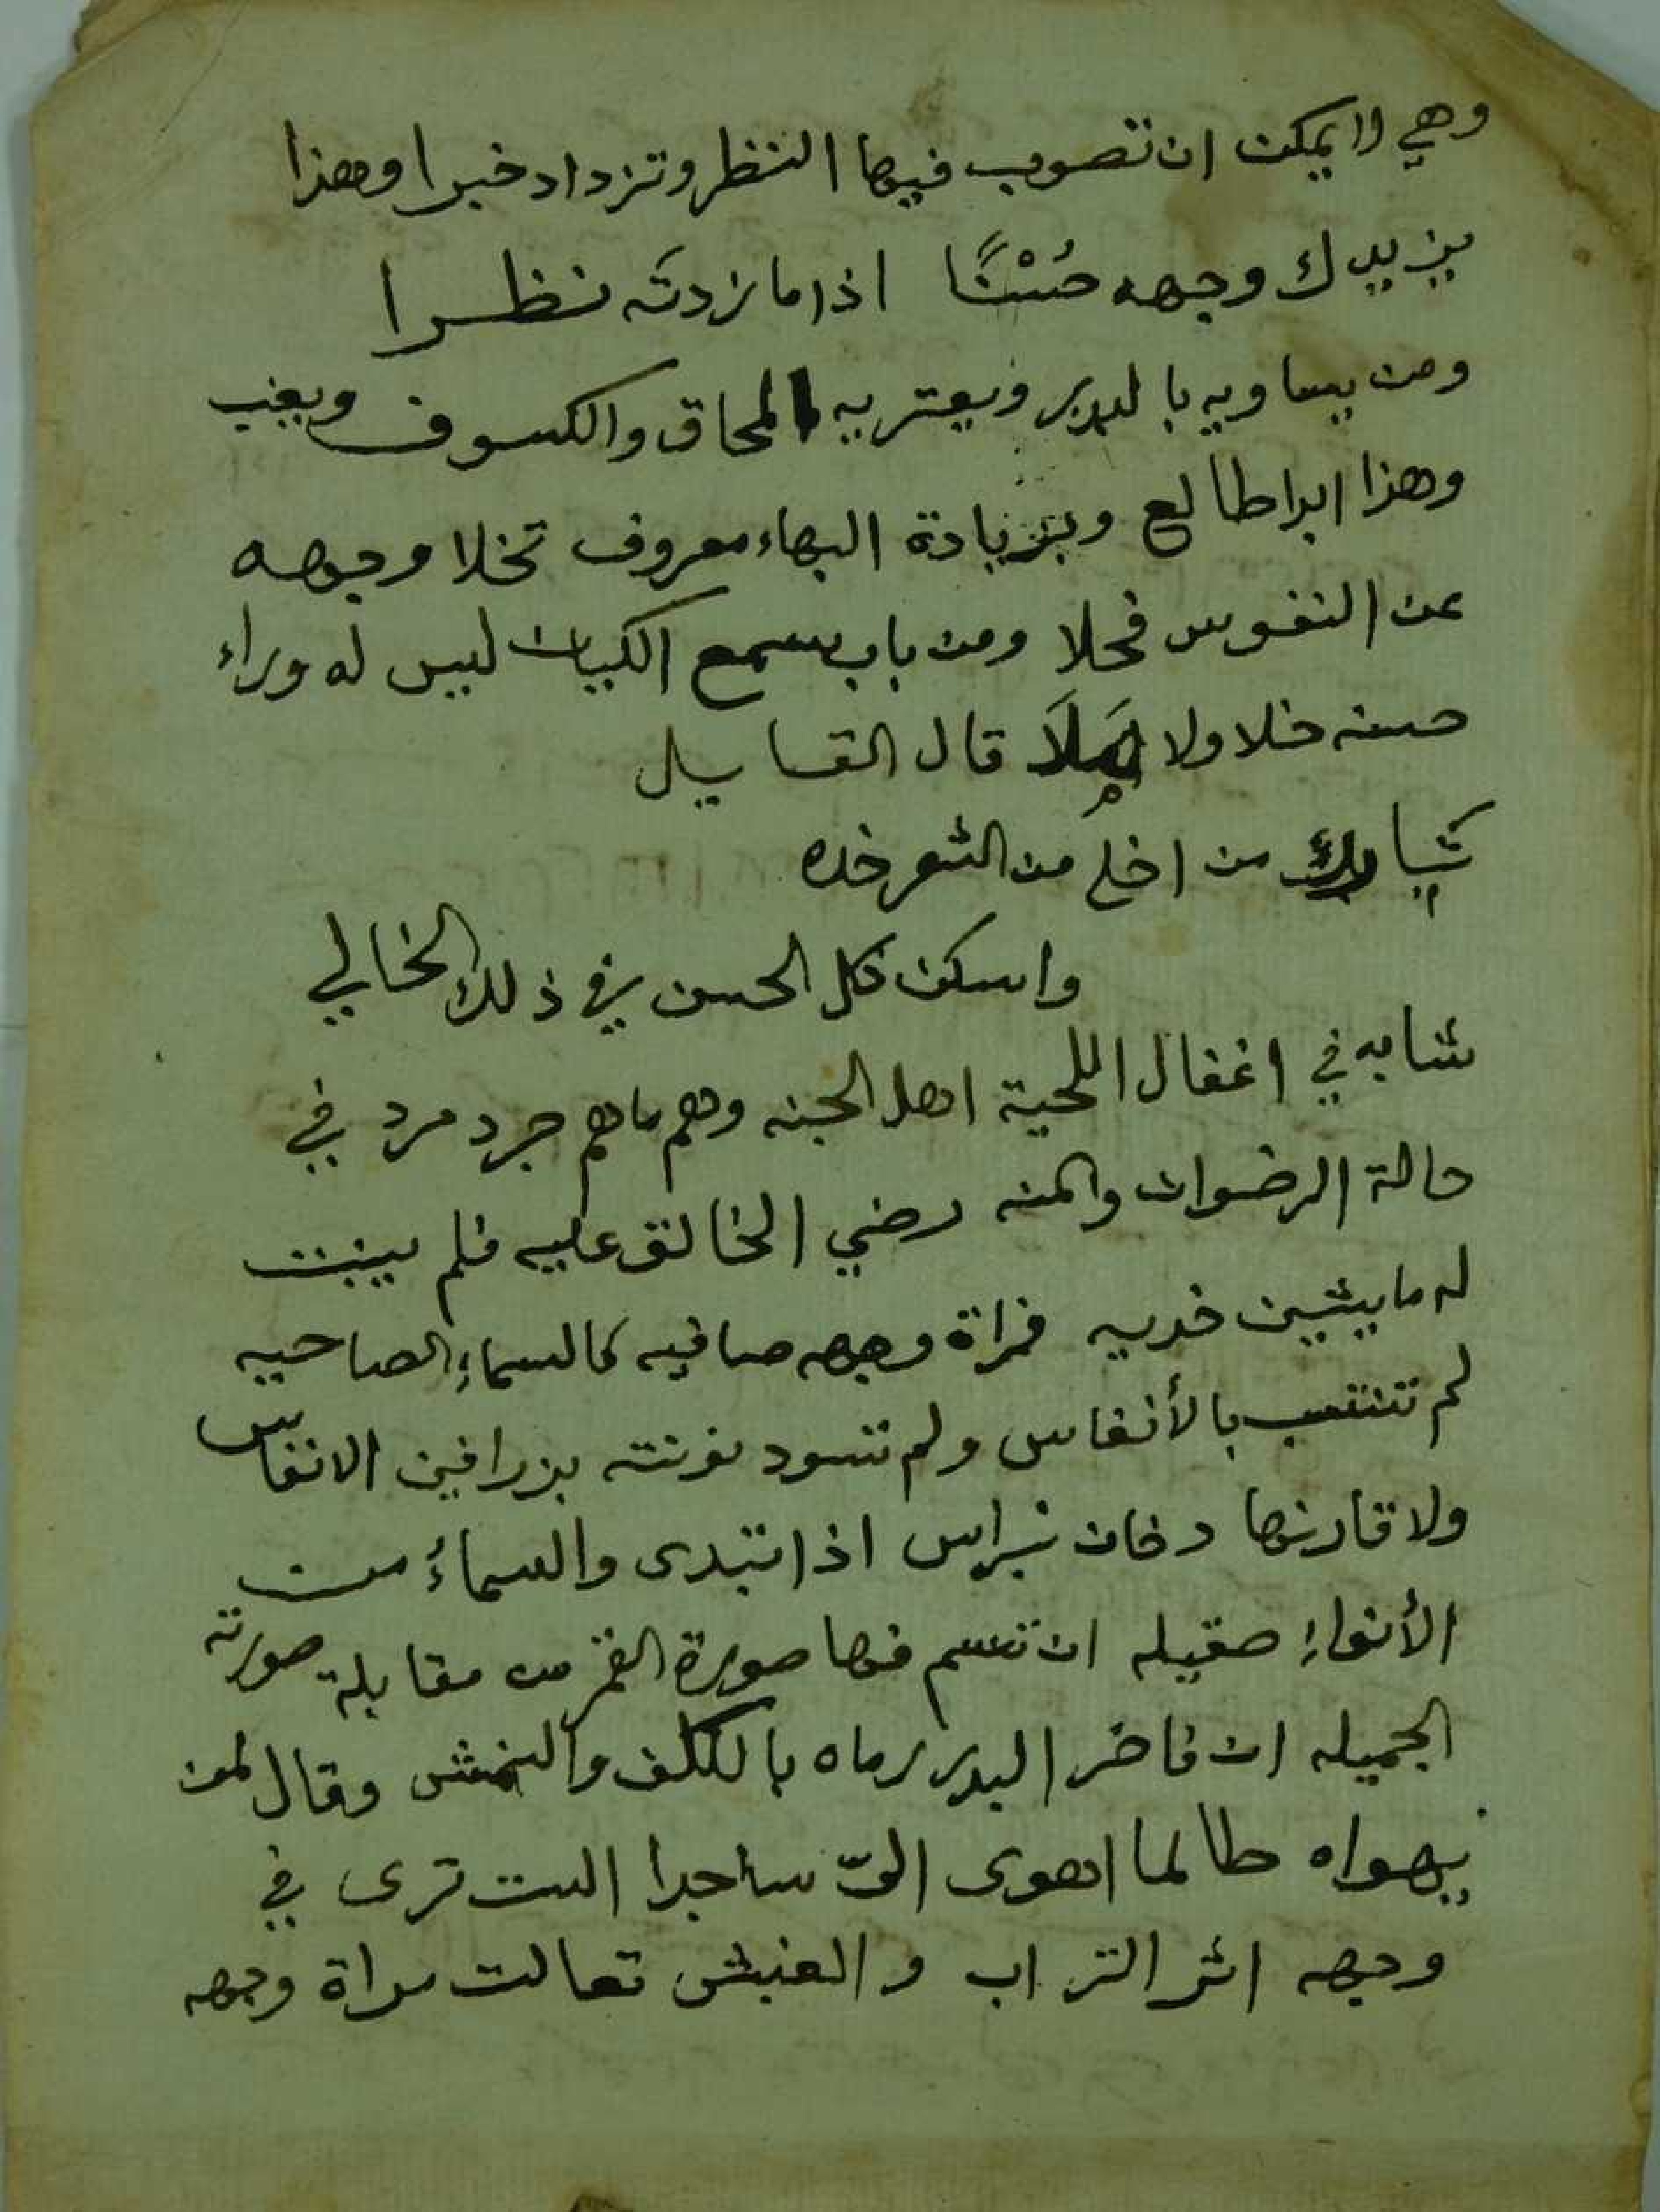 وهي لا يمكن ان تصوب فيها النظر وتزداد خبرا وهذا
يزيدك وجهه حُسْنًا اذا ما زدته نظرا
ومن يساويه بالبدر ويعتريه المحاق والكسوف ويغيب
وهذا ابدا طالع وبزيادة البهاء معروف تخلا وجهه
عن النفوس فحلا ومن باب سمع الكيان ليس له وراء
حسنه خلا ولا مَلَا قال القايل
تبارك من اخلى من الشعر خده
واسكن كل الحسن في ذلك الخالي
شابه في اغفال اللحية اهل الجنه وهم ما هم جرد مرد في
حالة الرضوان والمنه رضي الخالق عليه فلم ينبت
له ما يشين خديه فمراة وجهه صافيه كالسماءِ الصاحيه
لم تنتقب بالأنفاس ولم تسود بزرافين الانفاس
ولا قارنها دخان نبراس اذا تبدى والسماءُ من
الأنواءِ صقيله ان ترسم فيها صورة القمر من مقابلة صورته
الجميله ان فاخر البدر رماه بالكلف والنمش وقال لمن
يهواه طالما اهوى اليّ ساجدا الست ترى في
وجهه اثر التراب والغبش تعالت مراة وجهه